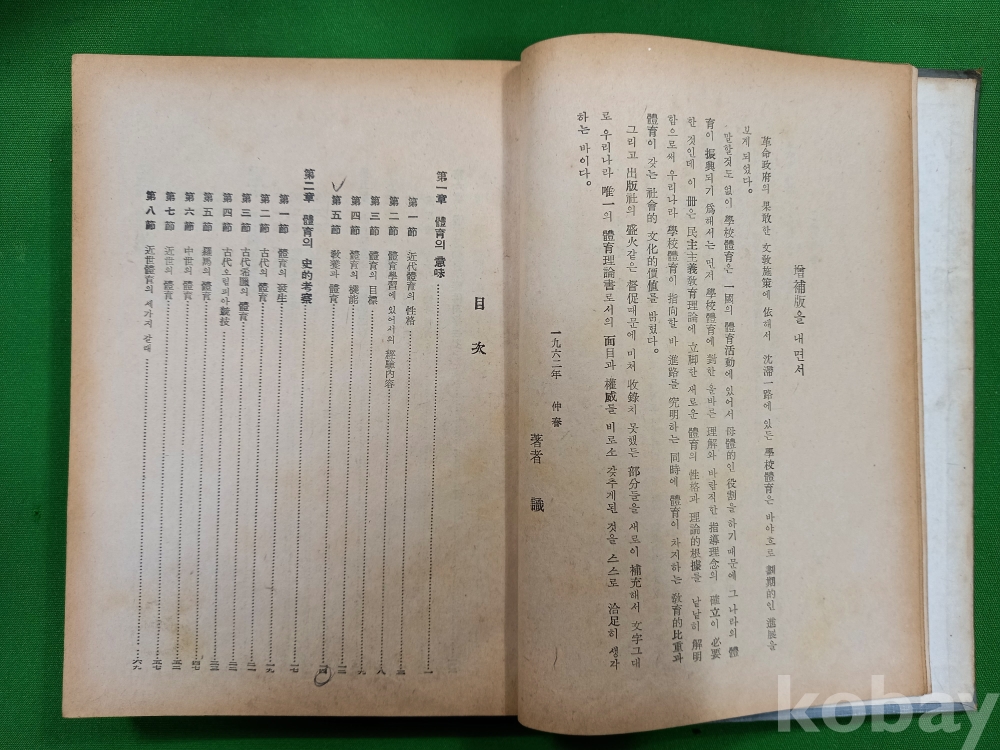 增補版을 내면서
革命政府의 果敢한 文敎施策에 依해서 沈滯一路에 있든 學校體育은 바야흐로 劃期的인 進展을
보게 되었다.
말할것도 없이 學校體育은 一國의 體育活動에 있어서 母體的인 役割을 하기 때문에 그 나라의 體
育이 振興되기 爲해서는 먼저 學校體育에 對한 올바른 理解와 바람직한 指導理念의 確立이 必要
한 것인데 이 冊은 民主主義敎育理論에 立脚한 새로운 體育의 性格과 理論的根據을 낱낱히 解明
함으로써 우리나라 學校體育이 指向할 바 進路를 究明하는 同時에 體育이 차지하는 敎育的比重과
體育이 갖는 社會的 文化的價値를 밝혔다.
그리고 出版社의 盛火같은 督促때문에 미처 收錄치 못했든 部分들을 새로이 補充해서 文字그대
로 우리나라 唯一의 體育理論書로서의 面目과 權威를 비로소 갖추게된 것을 스스로 洽足히 생각
하는 바이다.
一九六二年 仲春
著者 識
目 次
第一章 體育의 意味 一
第一節 近代體育의 性格
第二節 體育學習에 있어서의 經驗內容
第三節 體育의 目標 八
第四節 體育의 機能 九
第五節 敎養과 體育 一二
第二章 體育의 史的考察
第一節 體育의 發生 一七
第二節 古代의 體育 一九
第三節 古代希臘의 體育
第四節 古代오림피아競技
第五節 羅馬의 體育
第六節 中世의 體育 四七
第七節 近世의 體育 五七
第八節 近世體育의 세가지 갈래 六九
kobay